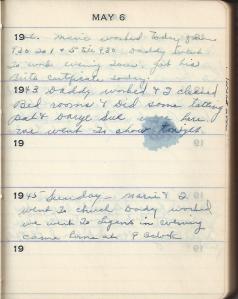 MAY 6
19 Marie worked today from
9:30 to 1 & 5 till 9:30 Daddy went
to work evening soon. got his
Birth certificate today.
1943 Daddy worked & I cleaned
Bed rooms & Did some tatting
Pat & Daryl Sue here
we went to show tonight.
19
1945 Sunday - Marie & I
went to church Dady worked
we went to in evening
came home at 9 oclock
19